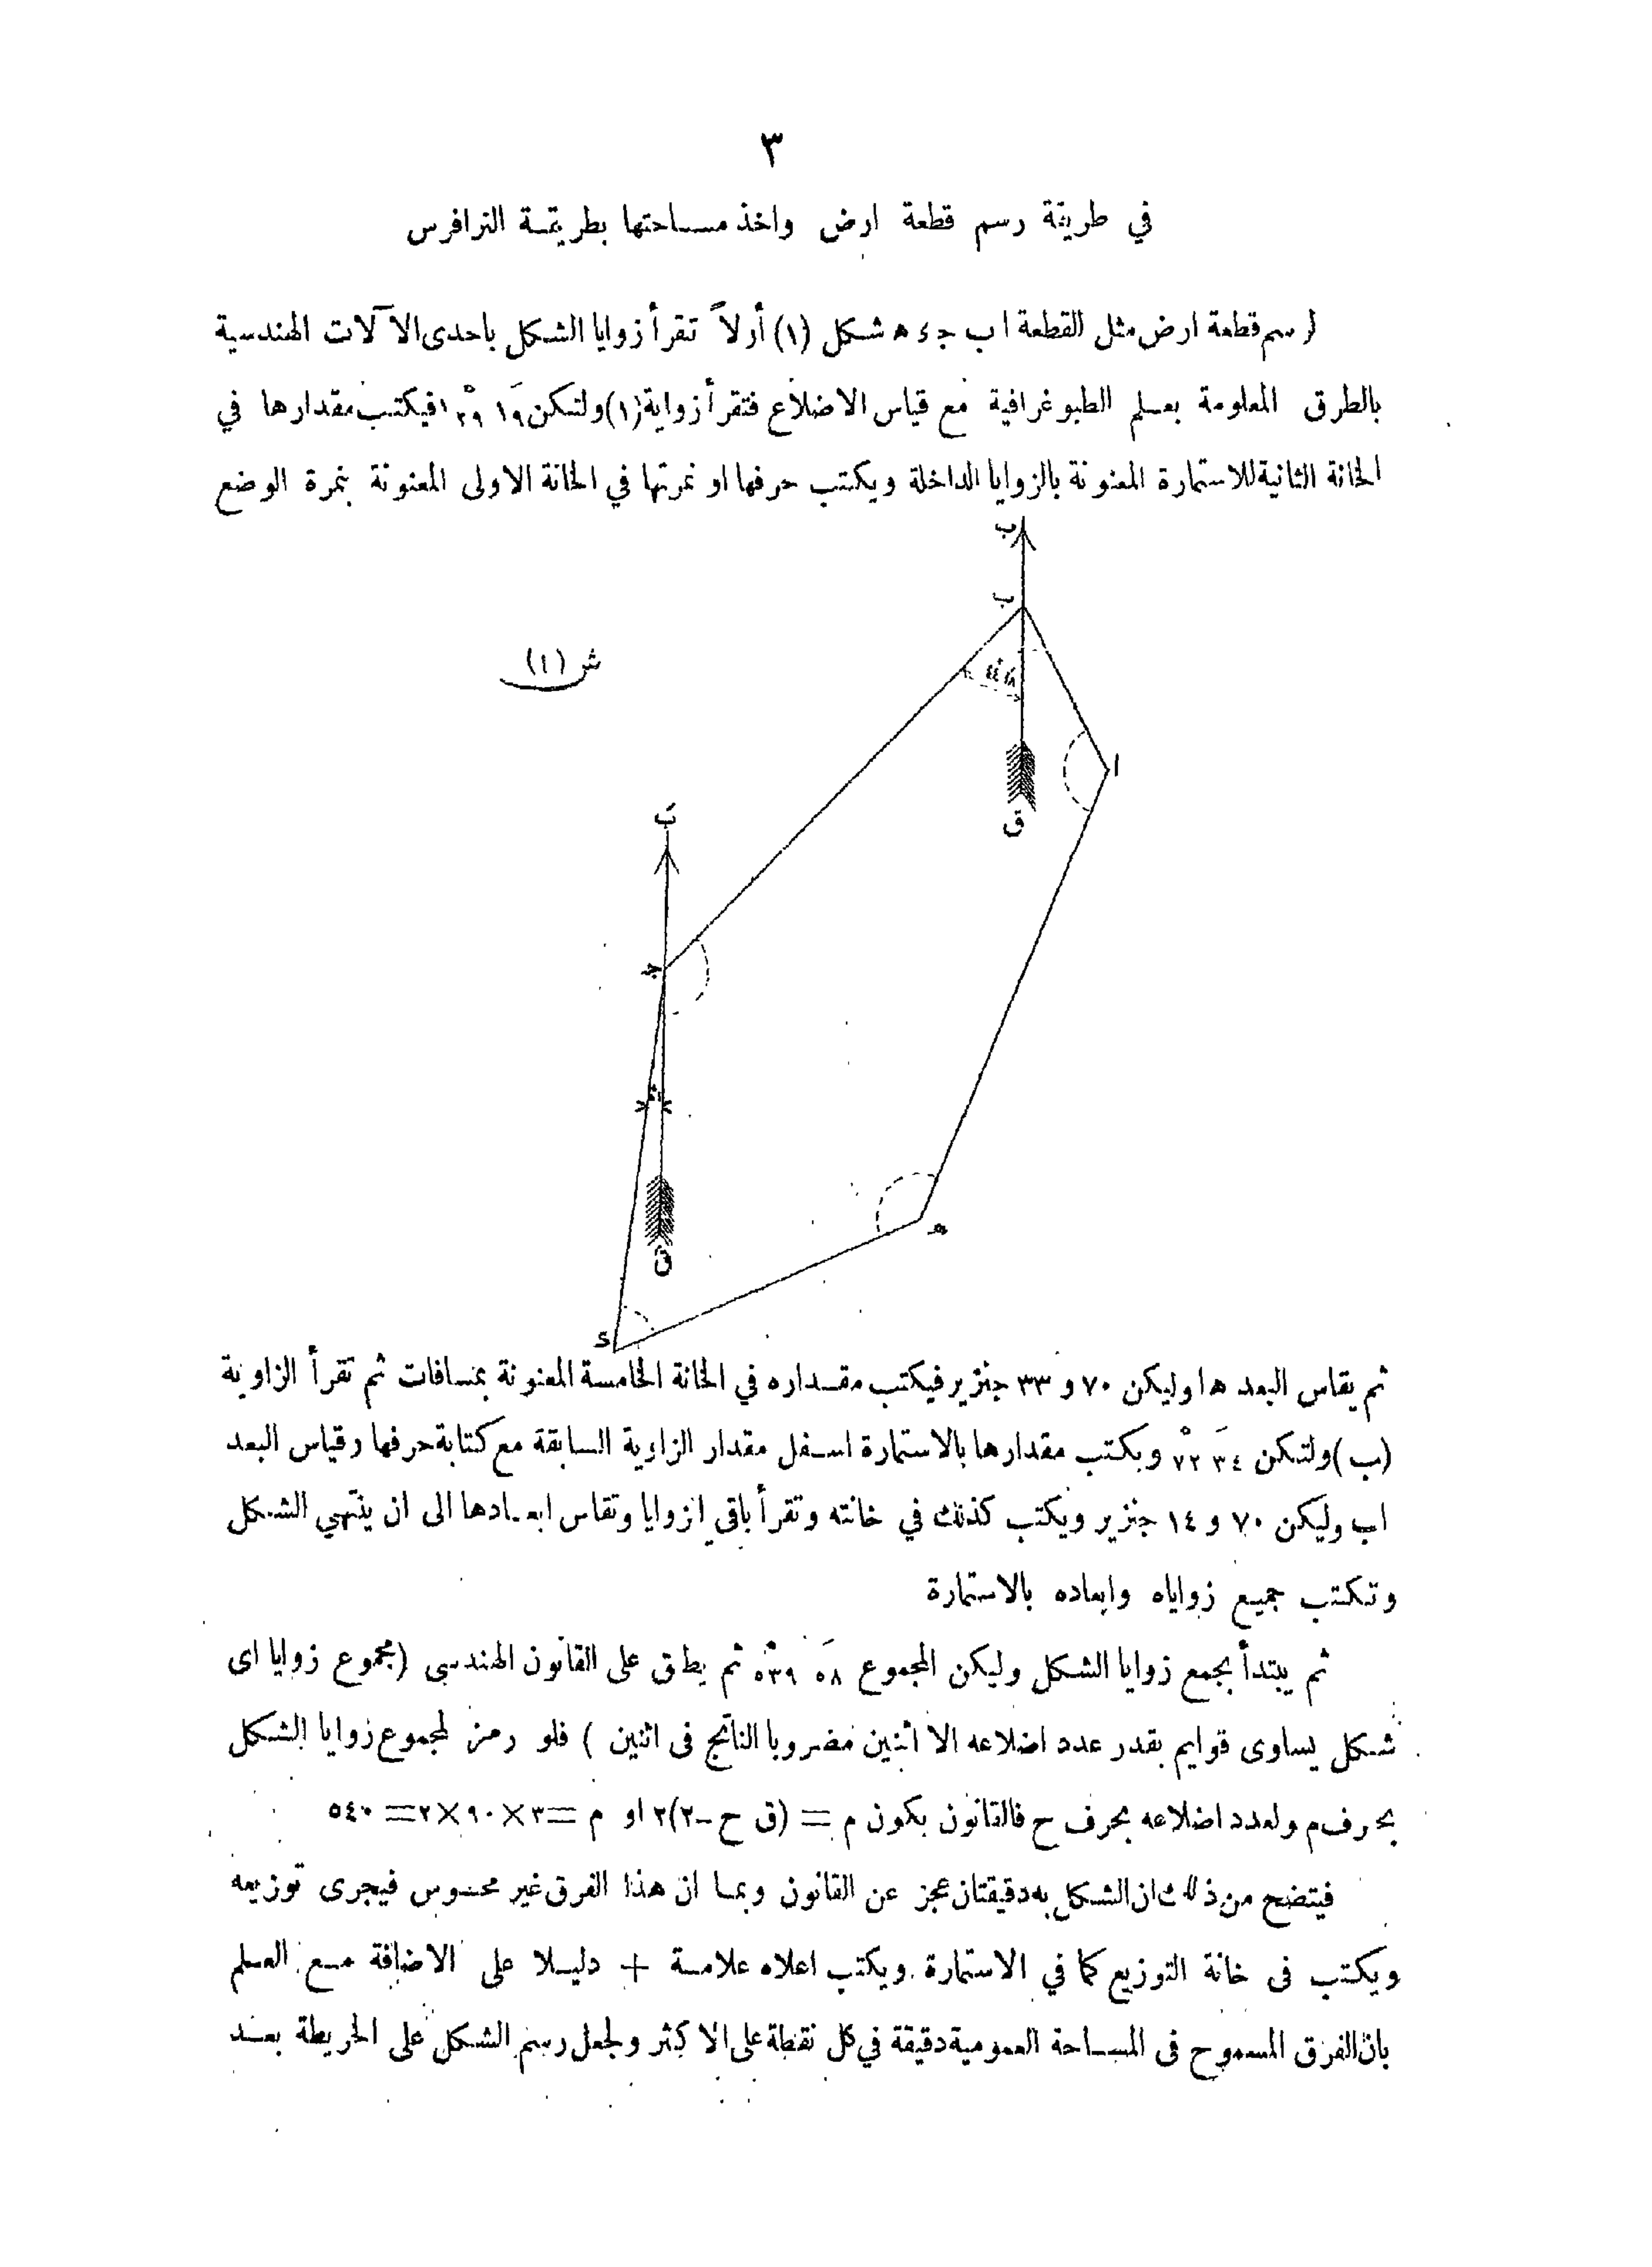 ٣
في طريقة رسم قطعة ارض واخذ مساحتها بطريقة الترافرس
لرسم قطعة ارض مثل القطعة ا ب ج د ه شكل (١) أولاً تقرأ زوايا الشكل باحدى الآلات الهندسية
بالطرق المعلومة بعلم الطبوغرافية مع قياس الاضلاع فتقرأ زواية (ا) ولتكن ١٩َ ١٣٩ْ فيكتب مقدارها في
الخانة الثانية للاستمارة المعنونة بالزوايا الداخلة ويكتب حرفها او نمرتها في الخانة الاولى المعنونة بنمرة الوضع
ب
ب
ش (١)
ا
ق
بَ
ج
قَ
ه
د
ثم يقاس البعد ه ا وليكن ٧٠ و ٣٣ جنزير فيكتب مقداره في الخانة الخامسة المعنونة بمسافات ثم تقرأ الزاوية
(ب) ولتكن ٣٤َ ٧٢ْ ويكتب مقدارها بالاستمارة اسفل مقدار الزاوية السابقة مع كتابة حرفها وقياس البعد
اب وليكن ٧٠ و ١٤ جنزير ويكتب كذلك في خانته وتقرأ باقي الزوايا وتقاس ابعادها الى ان ينتهي الشكل
وتكتب جميع زواياه وابعاده بالاستمارة
ثم يبتدأ بجمع زوايا الشكل وليكن المجموع ٥٨َ ٥٣٩ْ ثم يطبق على القانون الهندسي (مجموع زوايا اى
شكل يساوى قوايم بقدر عدد اضلاعه الا اثنين مضروبا الناتج فى اثنين ) فلو رمز لمجموع زوايا الشكل
بحرف م ولعدد اضلاعه بحرف ح فالقانون يكون م = (ق ح -٢)٢ او م =٣×٩٠×٢= ٥٤٠
فيتضح من ذلك ان الشكل به دقيقتان عجز عن القانون وبما ان هذا الفرق غير محسوس فيجرى توزيعه
ويكتب فى خانة التوزيع كما في الاستمارة ويكتب اعلاه علامة + دليلا على الاضافة مع العلم
بان الفرق المسموح فى المساحة العمومية دقيقة في كل نقطة على الاكثر ولجعل رسم الشكل على الخريطة بعد